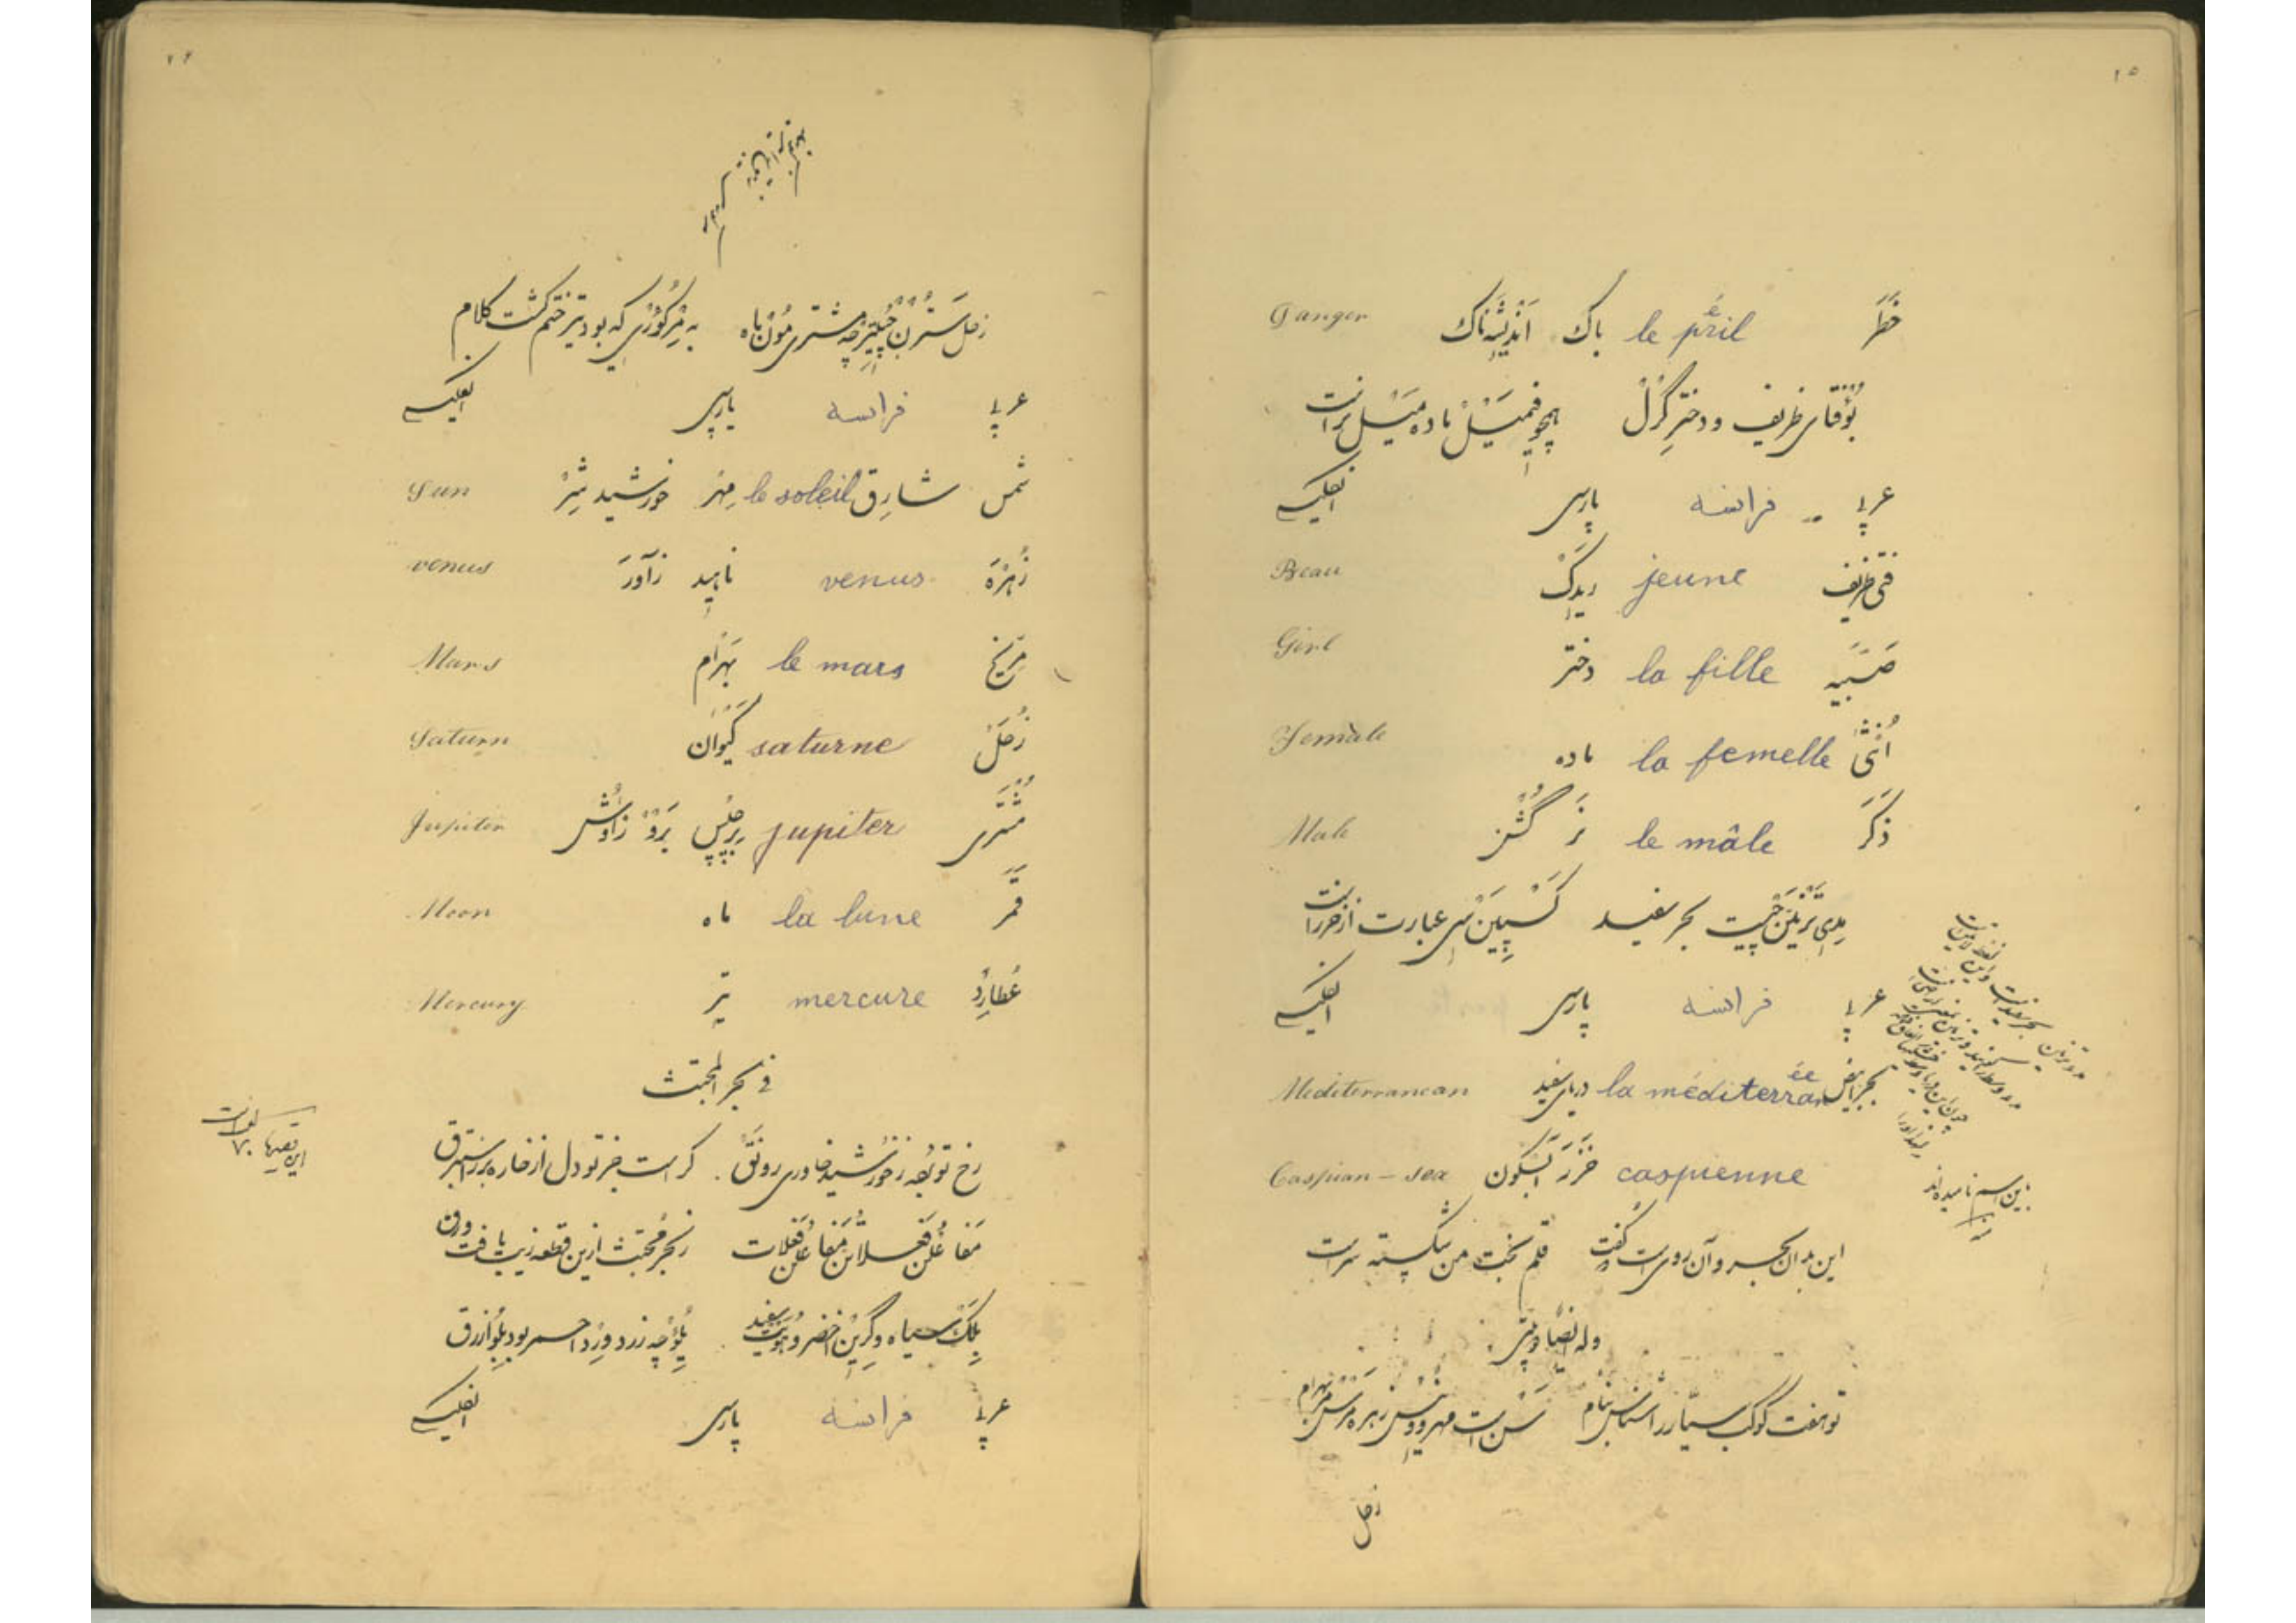 ۲۵
خَطَر le péril باک اَنْدیشِه‌ناک Danger
بُوْقای ظریف و دخترِ گِرْل همچو فیمَیْل ماده مَیْل نراست
عربی فرانسه پارسی انگلیسی
فتی ظریف jeune رَیدَک Beau
صَبیّه la fille دختر Girl
اُنْثی la femelle ماده Female
ذَکَر le mâle نَر گُشْن Male
مِدِیتَرّنیَنْ چیست بحر سفید کَسْپیَنْ سی عبارت از خزر است
عربی فرانسه پارسی انگلیسی
بحر ابیض la méditerranée دریای سفید Mediterranean
caspienne خَزَر آبسکون Caspian - sea
باین اسم نامیده‌اند
این بدان بحر و آن روی است گفت قلم بخت من شکسته سر است
وله ایضا
تو هفت کوکب سیّار را شناس بنام سَنْ است مهر و وِنِس زهره مَرْس بهرام
زحل
۲۶
زحل سَتُرْن جُپیتِر چه مشتری مُوْن ماه به مِرْکُوْری که بود تیر ختم گشت کلام
عربی فرانسه پارسی انگلیسی
شمس شارق le soleil مِهْر خورشید شِیْر Sun
زُهْرَه venus ناهید زآوَر venus
مِرّیخ le mars بَهْرام Mars
زُحَل saturne کَیْوان Saturn
مُشْتَری jupiter بِرجیس زاوُش Jupiter
قَمَر la lune ماه Moon
عُطارِد mercure تیر Mercury
فی بحر المجتث
رخ تو بُرده ز خورشید خاوری رونق کراست جز تو دل از خاره بر ز استبرق
مَفاعِلُن فَعِلاتُن مَفاعِلُن فَعِلات ز بحر مُجتث ازین قطعه زیب یافت ورق
بِلَک سیاه و گِرِیْن اخضر و هُوَیْت سفید یِلُوْ چه زرد و رِد احمر بود بِلُو ازرق
عربی فرانسه پارسی انگلیسی